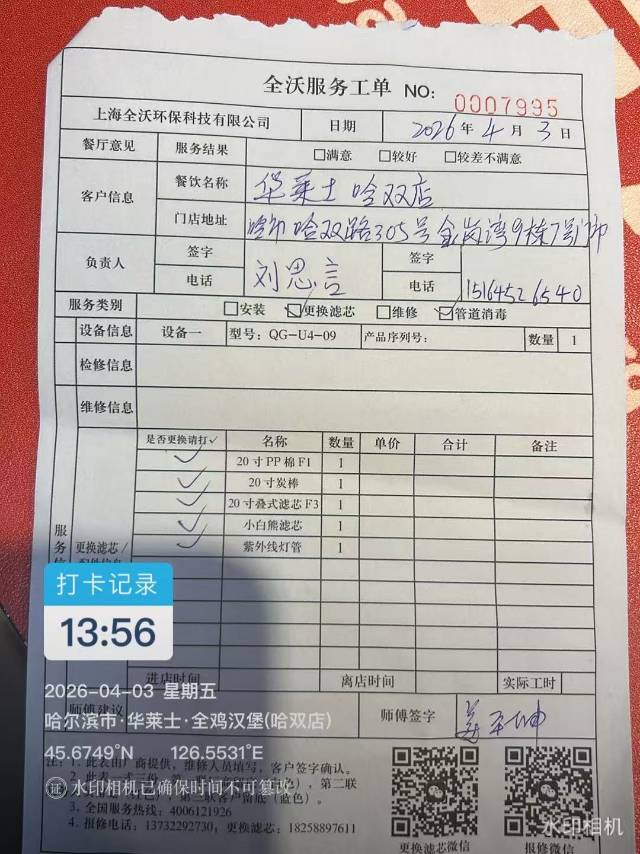 全沃服务工单 NO: 0007995
上海全沃环保科技有限公司 日期 2026年 4月 3日
餐厅意见 服务结果 □满意 □较好 □较差不满意
客户信息 餐饮名称 华莱士哈双店
门店地址 哈市哈双路305号金岗湾9栋7号门市
负责人 签字 刘思言 签字
电话 电话 15164526540
服务类别 □安装 ☑更换滤芯 □维修 ☑管道消毒
设备信息 设备一 型号: QG-U4-09 产品序列号: 数量 1
检修信息
维修信息
是否更换请打✓ 名称 数量 单价 合计 备注
✓ 20寸PP棉F1 1
✓ 20寸炭棒 1
✓ 20寸叠式滤芯F3 1
✓ 小白熊滤芯 1
✓ 紫外线灯管 1
服务信
更换滤芯/
打卡记录
13:56
进店时间 离店时间 实际工时
2026-04-03 星期五
师傅建议 师傅签字
哈尔滨市·华莱士·全鸡汉堡(哈双店)
45.6749°N 126.5531°E
注: 1. 此表由厂商提供, 维修人员填写, 客户签字确认。
2. 此表一式三份, 第一联 色), 第二联
水印相机已确保时间不可篡改
色), 第三联客户留底(蓝色)。
3. 全国服务热线: 4006121926
4. 报修电话: 13732292730; 更换滤芯: 18258897611
更换微信 报修微信
水印相机